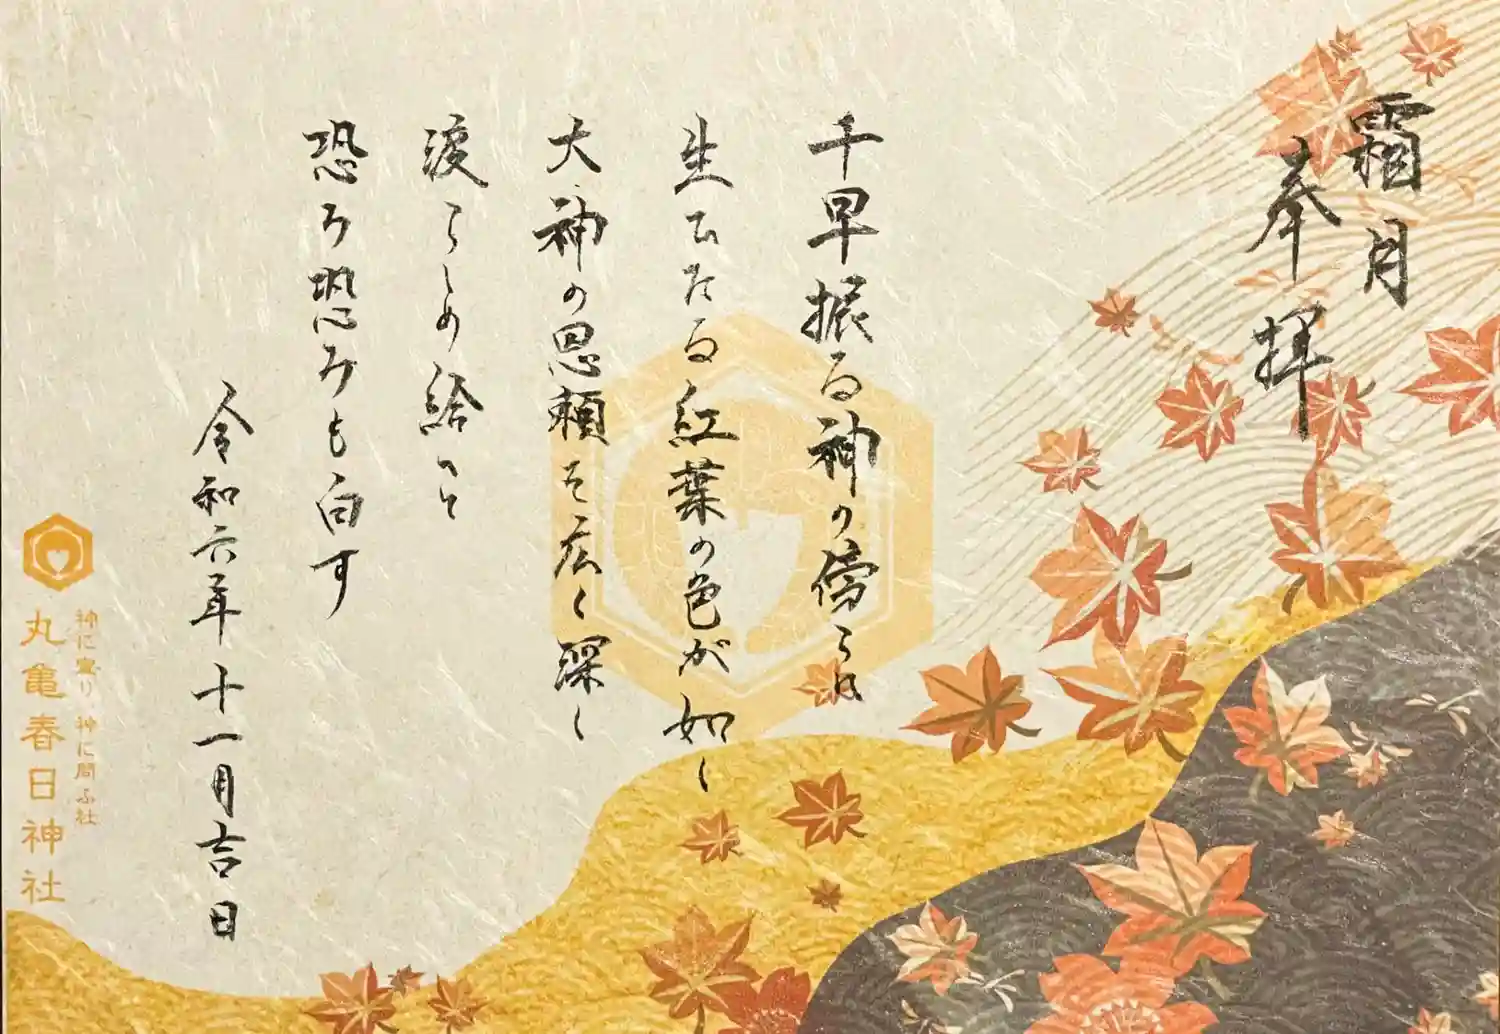 霜月
奉拝
千早振る神の傍らに
生ひたる紅葉の色が如し
大神の恩頼を広く深し
渡らしめ給へと
恐み恐みも白す
令和六年十一月吉日
神に寄り、神に問ふ社
丸亀春日神社